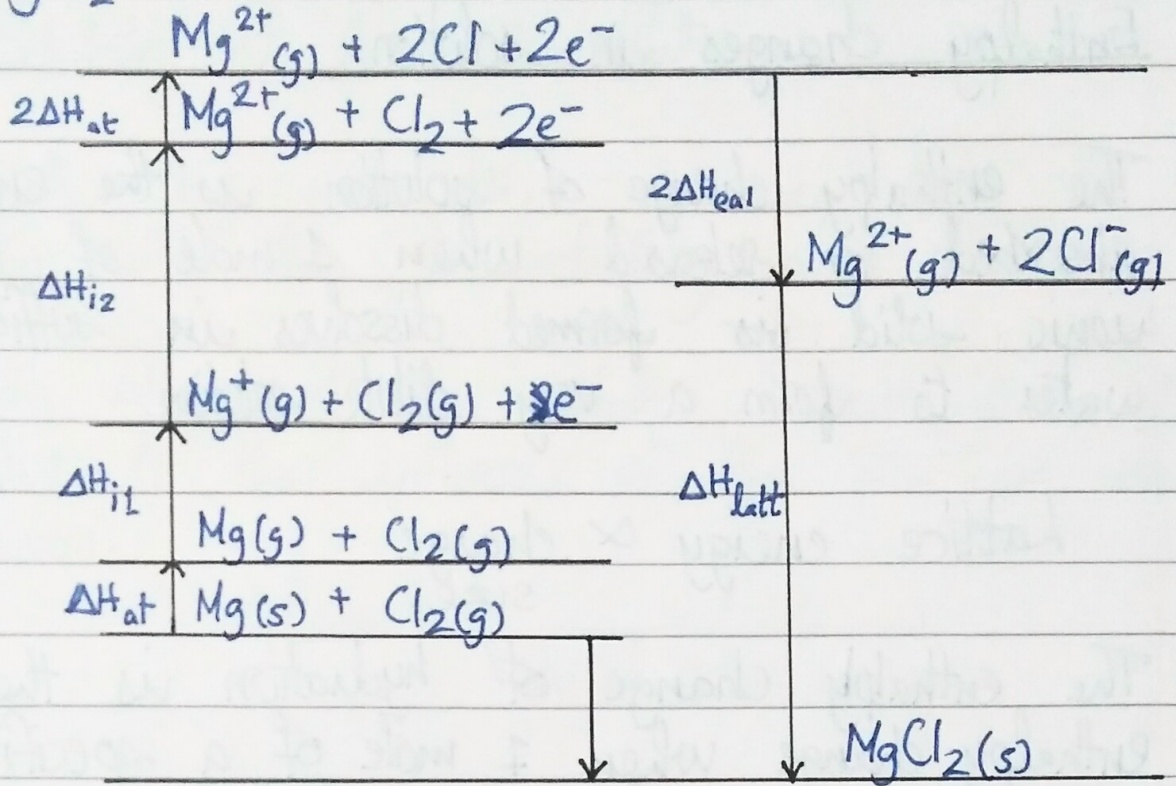 Mg²⁺(g) + 2Cl + 2e⁻
2ΔHat
Mg²⁺(g) + Cl₂ + 2e⁻
2ΔHea1
Mg²⁺(g) + 2Cl⁻(g)
ΔHi2
Mg⁺(g) + Cl₂(g) + e⁻
ΔHi1
ΔHlatt
Mg(g) + Cl₂(g)
ΔHat
Mg(s) + Cl₂(g)
MgCl₂(s)